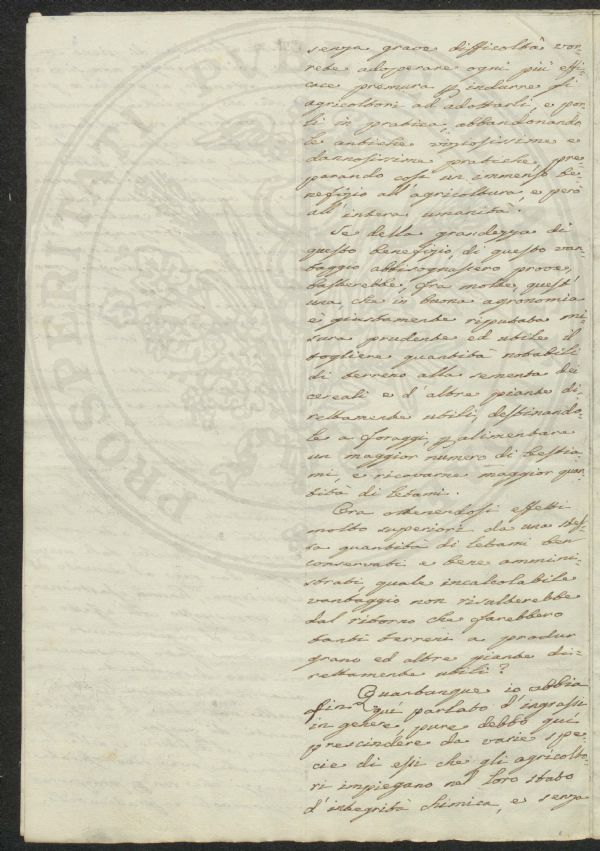 PROSPERITATI PVBLICAE
senza grave difficoltà vor-
rebe adoperare ogni più effi-
cace premura p indurre gli
agricoltori ad adottarli, e por-
li in pratica, abbandonando
le antiche viziosissime e
dannosissime pratiche, pre-
parando così un immenso be-
nefizio all'agricoltura, e però
all'intera umanità.
Se della grandezza di
questo benefizio, di questo van-
taggio abbisognassero prove,
basterebbe, fra molte, quest'
una, che in buona agronomia
è giustamente riputata mi-
sura prudente ed utile il
togliere quantità notabili
di terreno alla sementa dei
cereali e d'altre piante di-
rettamente utili, destinando-
le a foraggi, p alimentare
un maggior numero di bestia-
mi, e ricavarne maggior quan-
tità di letami.
Ora ottenendosi effetti
molto superiori da una stes-
sa quantità di letami ben
conservati e bene ammini-
strati, quale incalcolabile
vantaggio non risulterebbe
dal ritorno che farebbero
tanti terreni a produr
grano ed altre piante di-
rettamente utili?
Quantunque io abbia
fin quì parlato d'ingrassi
in genere, pure debbo quì
prescindere da varie spe-
cie di essi che gli agricolto-
ri impiegano nel loro stato
d'integrità chimica, e senza